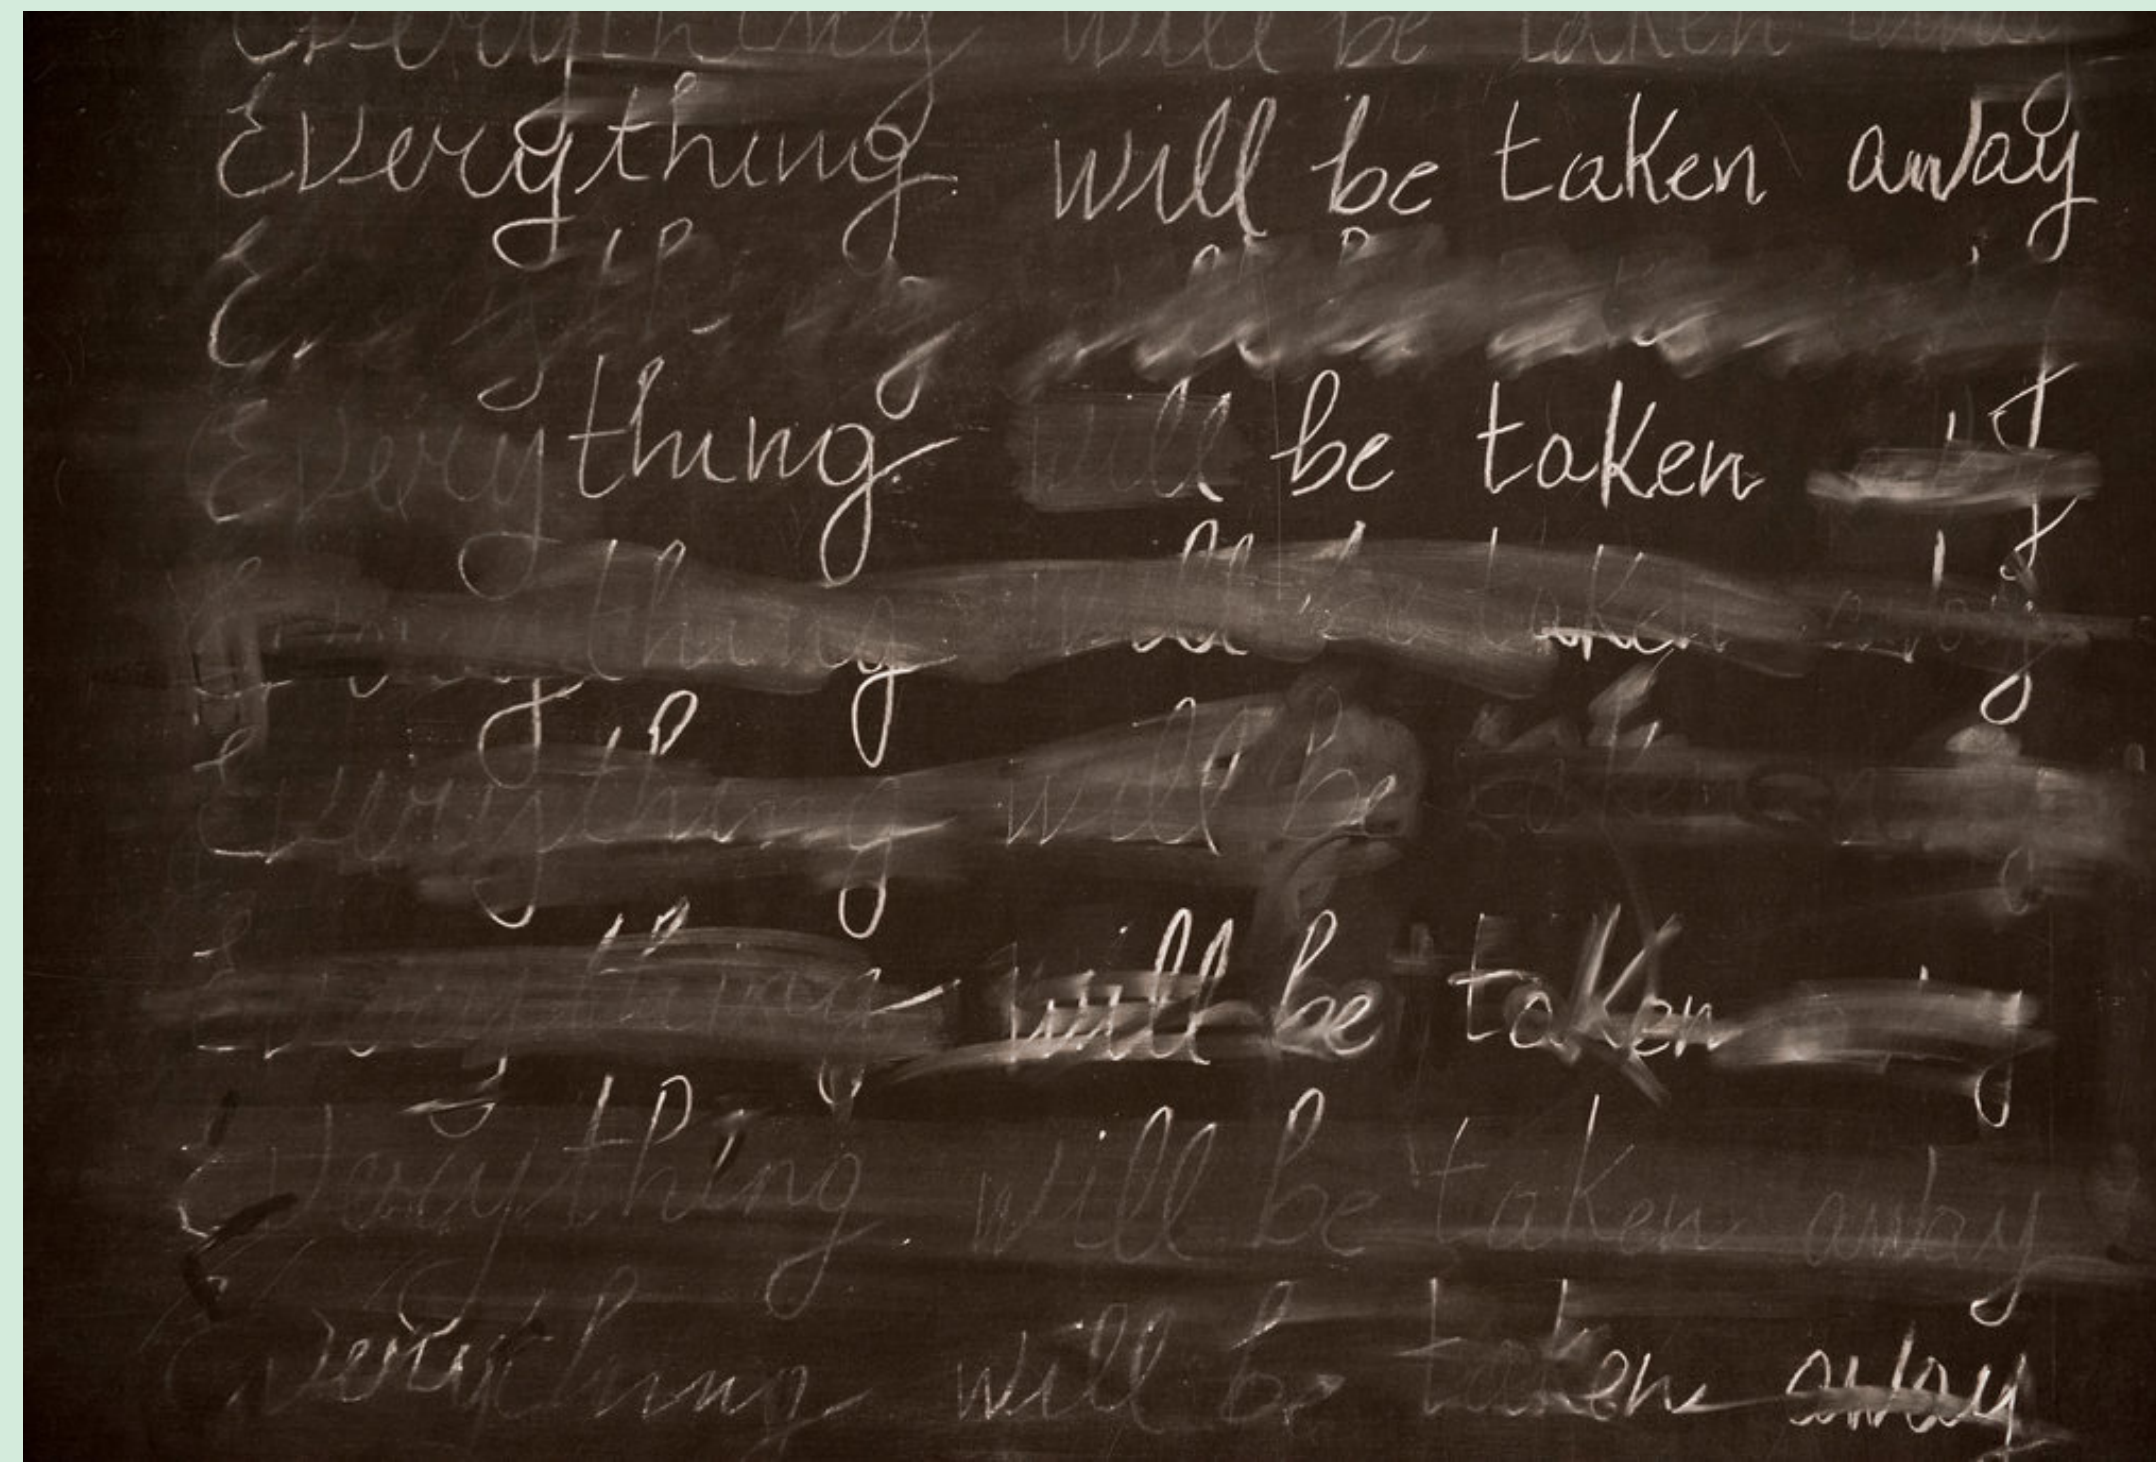 Everything will be taken away
Everything will be taken away
Everything will be taken
Everything will be taken away
Everything will be taken
Everything will be taken
Everything will be taken away
Everything will be taken away